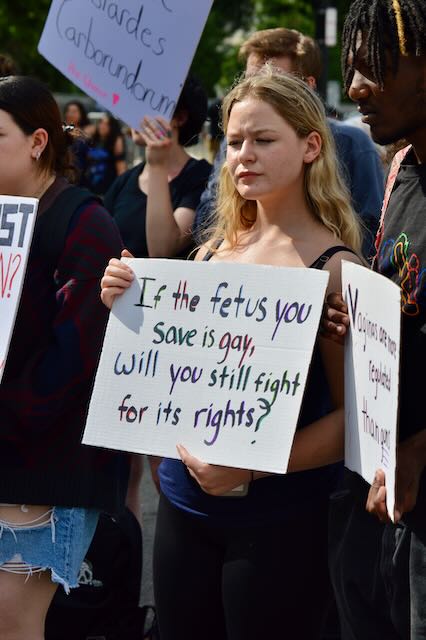 Bastardes
Carborundorum
If the fetus you
save is gay,
will you still fight
for its rights?
Vaginas are more
regulated
than guns!